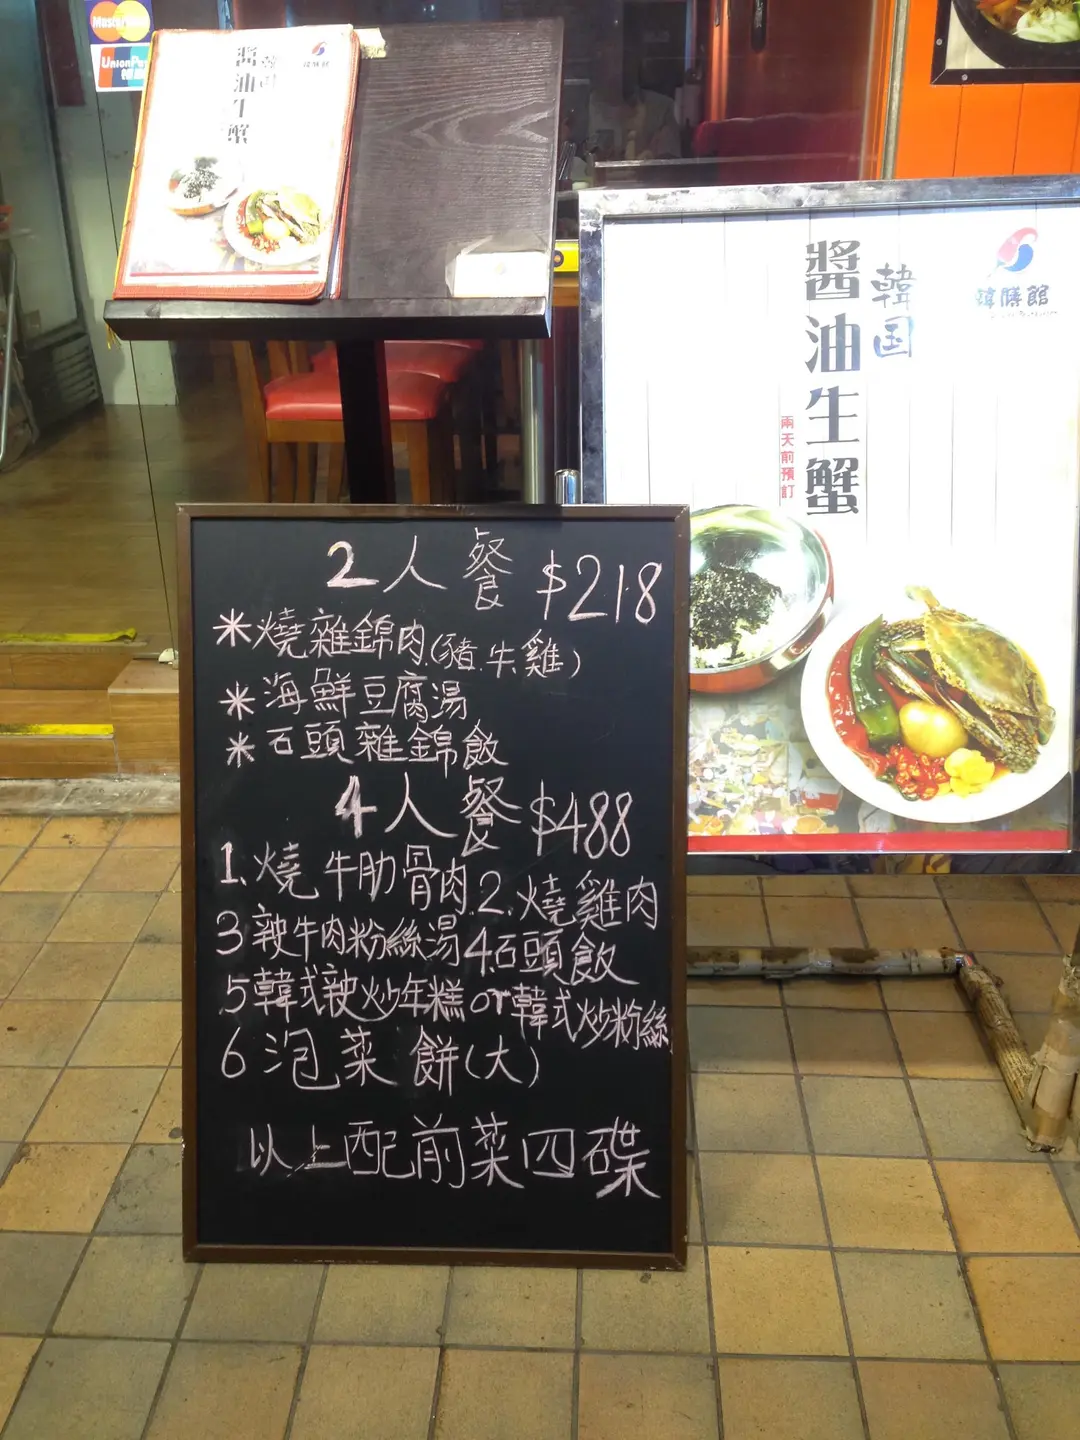 MasterCard
UnionPay
醬油生蟹
韓国
醬油生蟹
兩天前預訂
韓膳館
2人餐 $218
*燒雜錦肉(豬.牛.雞)
*海鮮豆腐湯
*石頭雜錦飯
4人餐 $488
1.燒牛肋骨肉 2.燒雞肉
3辣牛肉粉絲湯 4.石頭飯
5韓式辣炒年糕 or韓式炒粉絲
6泡菜餅(大)
以上配前菜四碟